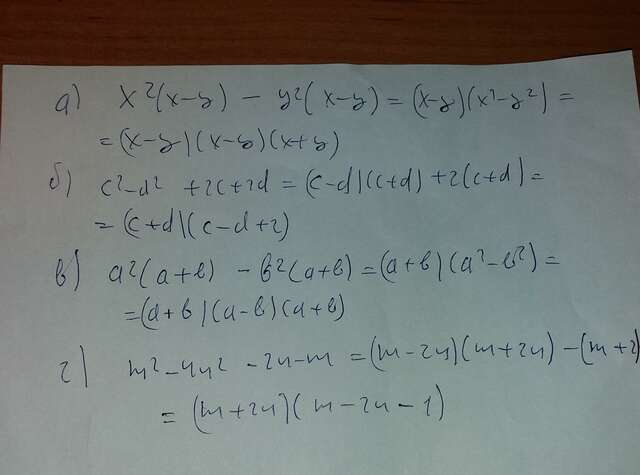 а) x²(x-y) - y²(x-y) = (x-y)(x²-y²) =
= (x-y)(x-y)(x+y)
б) c²-d² +2c+2d = (c-d)(c+d)+2(c+d) =
= (c+d)(c-d+2)
в) a²(a+b) - b²(a+b) = (a+b)(a²-b²) =
= (a+b)(a-b)(a+b)
г) m²-4n² -2n-m = (m-2n)(m+2n)-(m+2
= (m+2n)(m-2n-1)